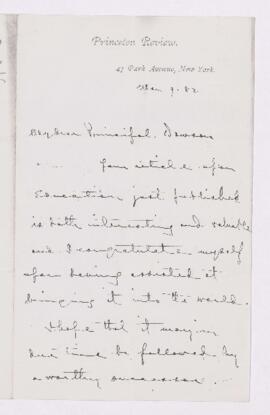 Princeton Review.
47 Park Avenue, New York.
Mar 9. 82
My dear Principal Dawson
Your article upon
Education just published
is both interesting and valuable
and I congratulate myself
upon having assisted at
bringing it into the world.
I hope that it may in
due time be followed by
a worthy successor.